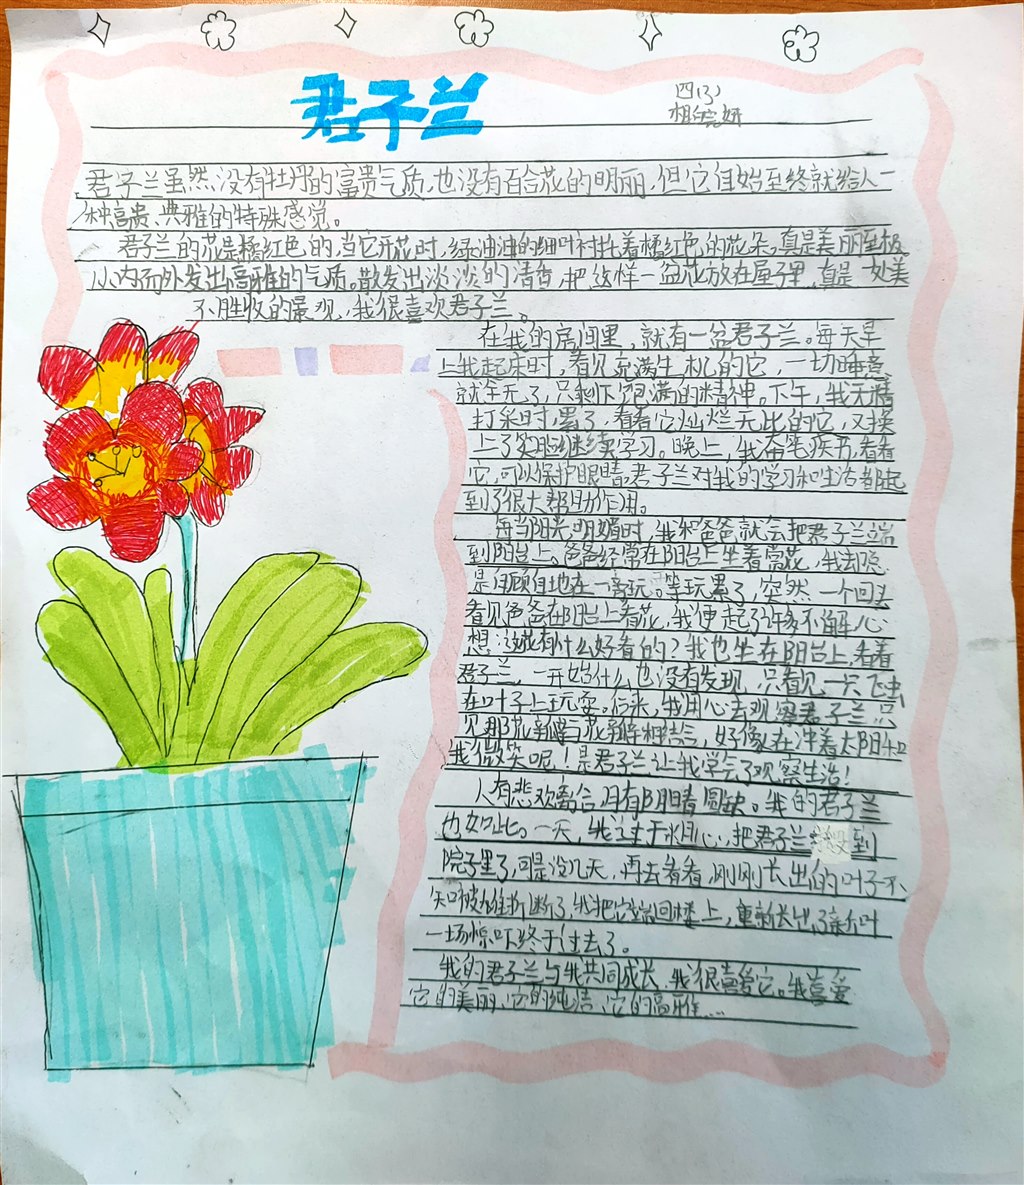 君子兰
四(3)
相
君子兰虽然没有牡丹的富贵气质,也没有百合花的明丽,但它自始至终就给人一
种高贵、典雅的特殊感觉。
君子兰的花是橘红色的,当它开花时,绿油油的细叶衬托着橘红色的花朵,真是美丽至极
从内而外发出高雅的气质。散发出淡淡的清香,把这样一盆花放在屋子里,真是一处美
不胜收的景观,我很喜欢君子兰。
在我的房间里,就有一盆君子兰。每天早
上我起床时,看见充满生机的它,一切睡意
就全无了,只剩下饱满的精神。下午,我无精
打采时,累了,看看它灿烂无比的它,又换
上了笑脸继续学习。晚上,我奋笔疾书,看看
它,可以保护眼睛,君子兰对我的学习和生活都起
到了很大帮助作用。
每当阳光明媚时,我和爸爸就会把君子兰端
到阳台上。爸爸经常在阳台上坐着赏花,我却总
是自顾自地在一旁玩。等玩累了,突然一个回头
看见爸爸在阳台上看花,我便起了许多不解,心
想:这花有什么好看的?我也坐在阳台上,看着
君子兰,一开始什么也没有发现,只看见一只飞虫
在叶子上玩耍。后来,我用心去观察君子兰,只
见那花瓣与花瓣相结合,好像在冲着太阳和
我微笑呢!是君子兰让我学会了观察生活!
人有悲欢离合,月有阴晴圆缺。我的君子兰
也如此。一天,我过于粗心,把君子兰搬到
院子里了,可是没几天,再去看看,刚刚长出的叶子不
知被谁折断了,我把它端回楼上,重新长出了新叶
一场惊吓终于过去了。
我的君子兰与我共同成长,我很喜爱它。我喜爱
它的美丽、它的纯洁、它的高雅……